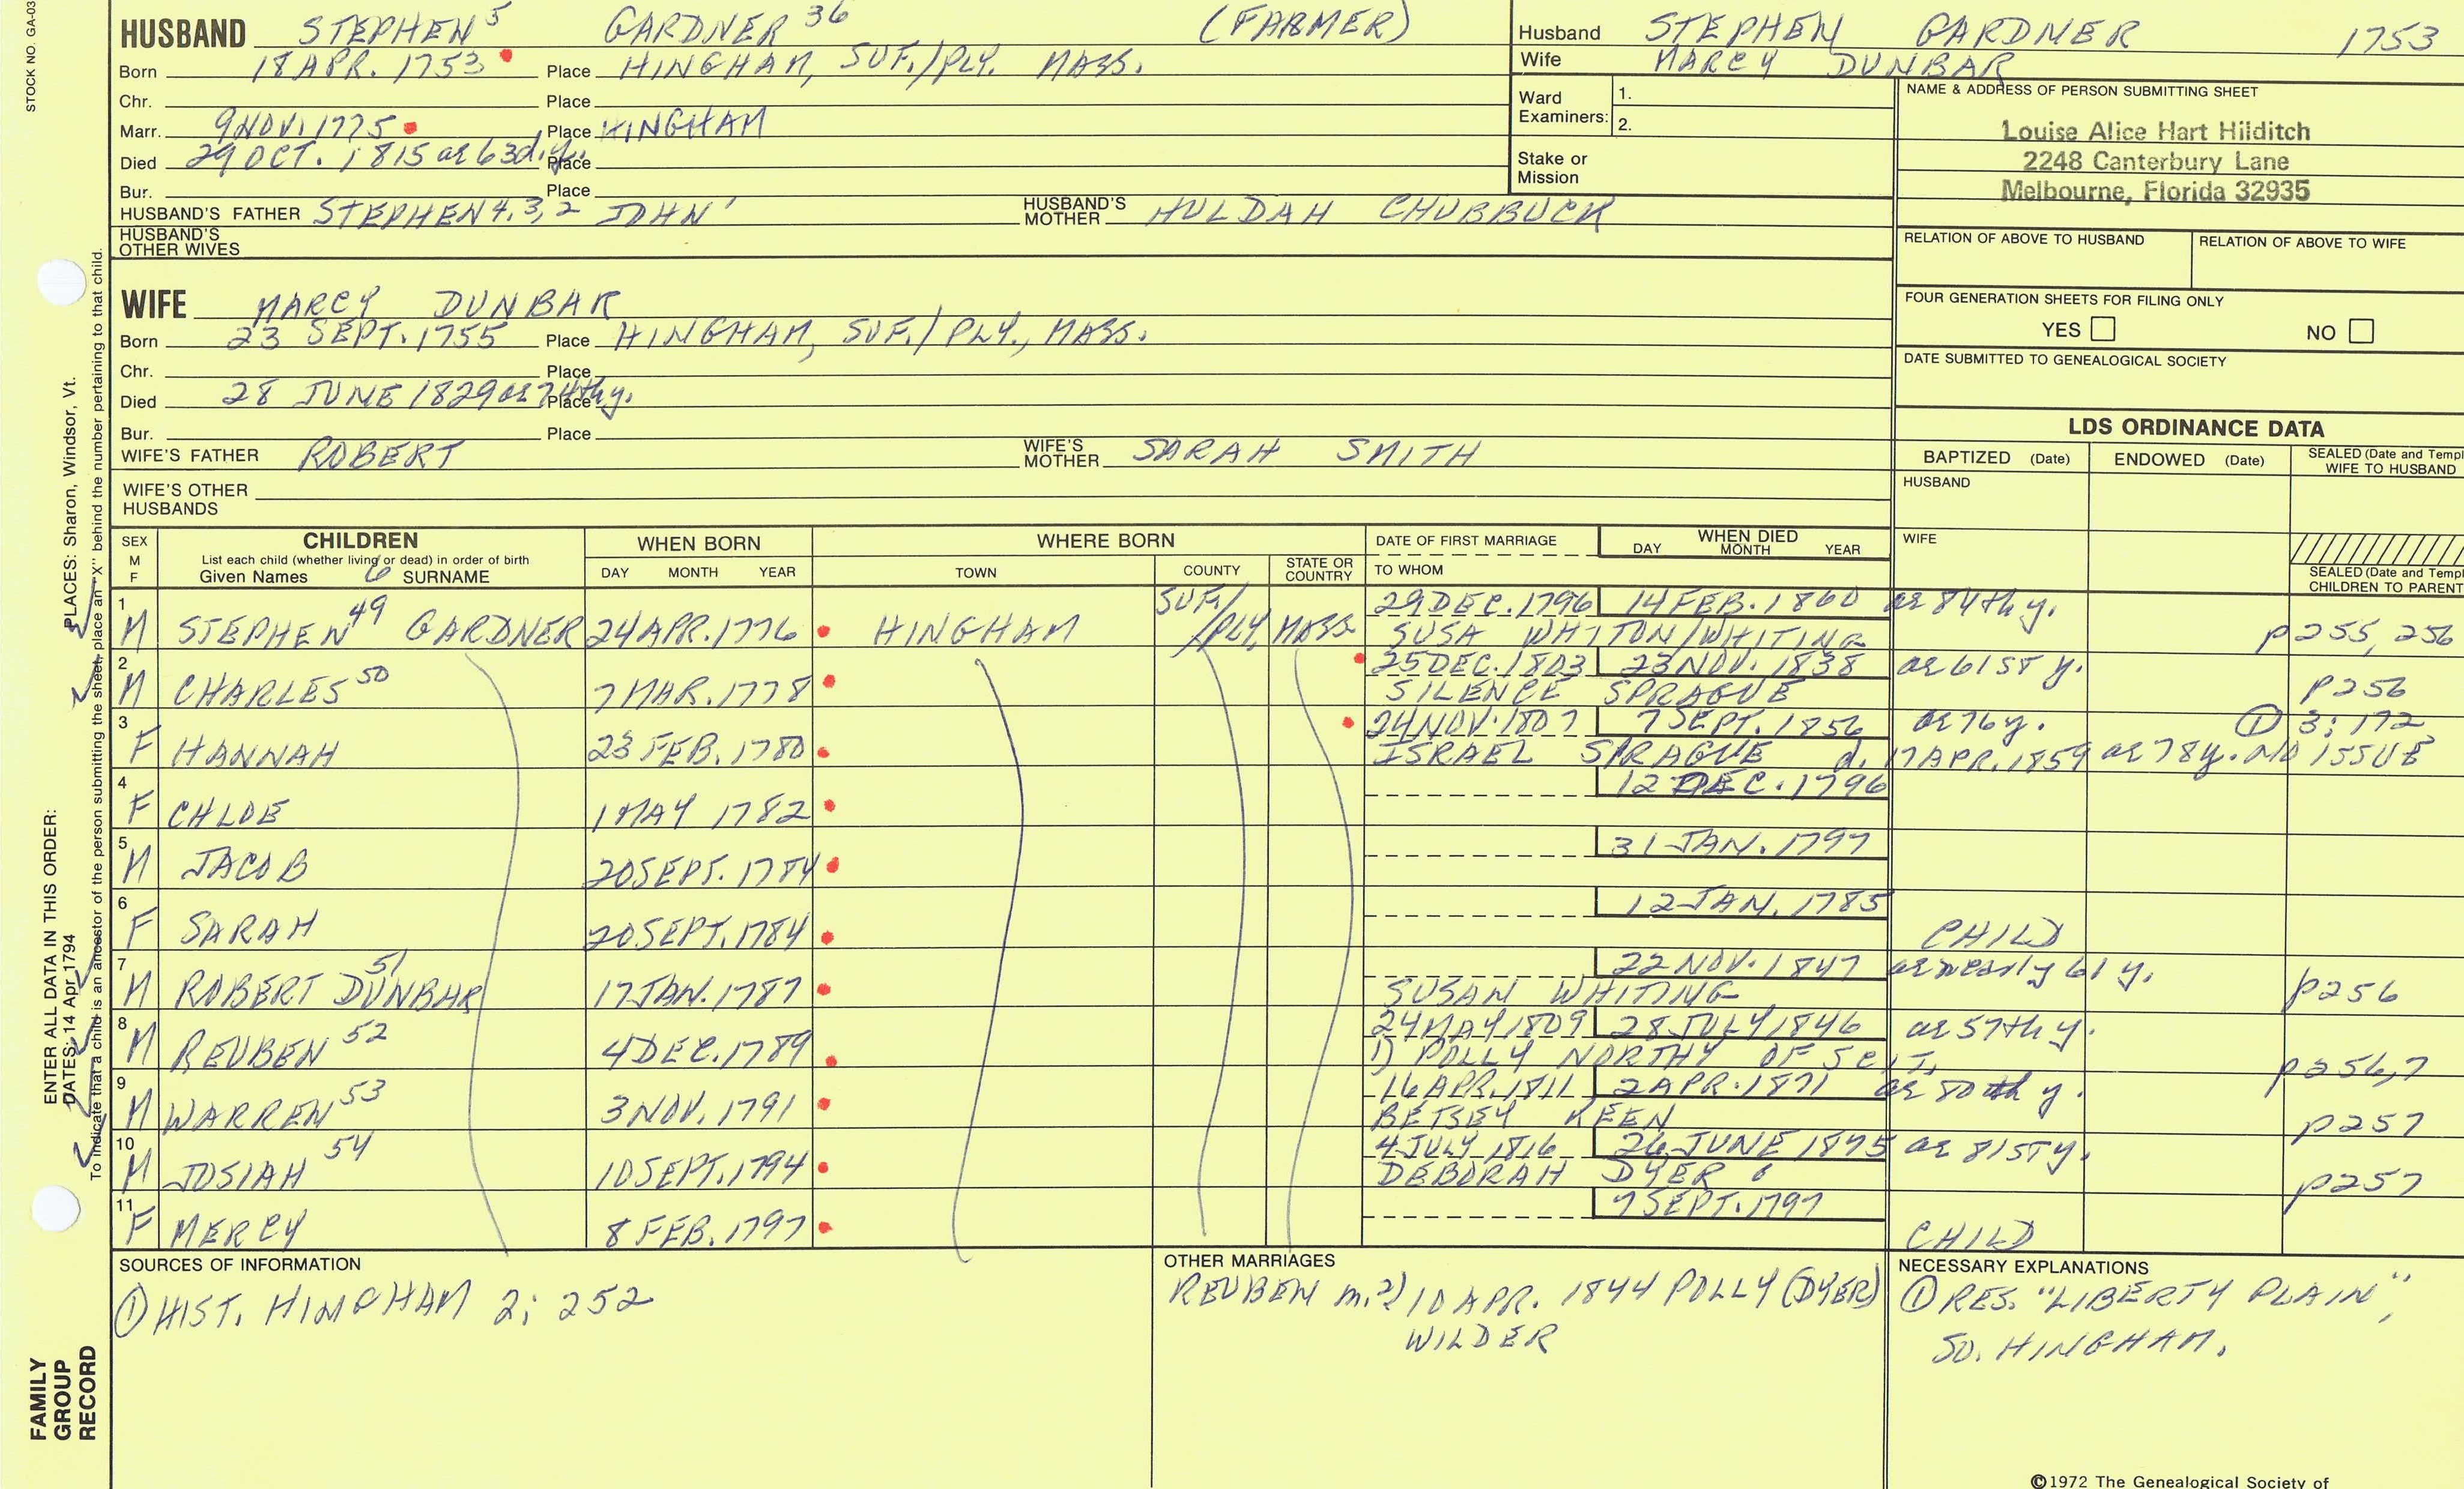 STOCK NO. GA-03
HUSBAND STEPHEN 5 GARDNER 36 (FARMER)
Born 18 APR. 1753 Place HINGHAM, SUF./PLY. MASS.
Chr. Place
Marr. 9 NOV. 1775 Place HINGHAM
Died 29 OCT. 1815 ae 63d. y. Place
Bur. Place
HUSBAND'S FATHER STEPHEN 4, 3, 2 JOHN ' HUSBAND'S MOTHER HULDAH CHUBBUCK
HUSBAND'S OTHER WIVES
Husband STEPHEN GARDNER 1753
Wife MARCY DUNBAR
Ward Examiners: 1.
2.
Stake or Mission
NAME & ADDRESS OF PERSON SUBMITTING SHEET
Louise Alice Hart Hilditch
2248 Canterbury Lane
Melbourne, Florida 32935
RELATION OF ABOVE TO HUSBAND RELATION OF ABOVE TO WIFE
FOUR GENERATION SHEETS FOR FILING ONLY
YES NO
DATE SUBMITTED TO GENEALOGICAL SOCIETY
WIFE MARCY DUNBAR
Born 23 SEPT. 1755 Place HINGHAM, SUF./PLY., MASS.
Chr. Place
Died 28 JUNE 1829 ae 74th y. Place
Bur. Place
WIFE'S FATHER ROBERT WIFE'S MOTHER SARAH SMITH
WIFE'S OTHER HUSBANDS
LDS ORDINANCE DATA
BAPTIZED (Date) ENDOWED (Date) SEALED (Date and Templ WIFE TO HUSBAND
HUSBAND
WIFE
SEALED (Date and Templ CHILDREN TO PARENT
SEX M F CHILDREN WHEN BORN WHERE BORN DATE OF FIRST MARRIAGE WHEN DIED
List each child (whether living or dead) in order of birth
Given Names 6 SURNAME DAY MONTH YEAR TOWN COUNTY STATE OR COUNTRY TO WHOM DAY MONTH YEAR
1 M STEPHEN 49 GARDNER 24 APR. 1776 HINGHAM SUF./PLY. MASS. 29 DEC. 1796 14 FEB. 1860 ae 84th y.
SUSA WHITON/WHITING p255, 256
2 M CHARLES 50 7 MAR. 1778 25 DEC. 1803 23 NOV. 1838 ae 61ST y.
SILENCE SPRAGUE p256
3 F HANNAH 23 FEB. 1780 24 NOV. 1807 7 SEPT. 1856 ae 76 y. ① 3; 172
ISRAEL SPRAGUE d. 17 APR. 1859 ae 78y. NO ISSUE
4 F CHLOE 1 MAY 1782 12 DEC. 1796
5 M JACOB 20 SEPT. 1784 31 JAN. 1797
6 F SARAH 20 SEPT. 1784 12 JAN. 1785 CHILD
7 M ROBERT DUNBAR 51 17 JAN. 1787 22 NOV. 1847 ae nearly 61 y.
SUSAN WHITING p256
8 M REUBEN 52 4 DEC. 1789 24 MAY 1809 28 JULY 1846 ae 57th y.
1) POLLY NORTHY OF SCIT. p256,7
9 M WARREN 53 3 NOV. 1791 16 APR. 1811 2 APR. 1871 ae 80th y.
BETSEY KEEN p257
10 M JOSIAH 54 10 SEPT. 1794 4 JULY 1816 26 JUNE 1875 ae 81ST y.
DEBORAH DYER p257
11 F MERCY 8 FEB. 1797 7 SEPT. 1797 CHILD
SOURCES OF INFORMATION
① HIST. HINGHAM 2; 252
OTHER MARRIAGES
REUBEN m. 2) 10 APR. 1844 POLLY (DYER)
WILDER
NECESSARY EXPLANATIONS
① RES. "LIBERTY PLAIN",
SO. HINGHAM.
©1972 The Genealogical Society of
FAMILY GROUP RECORD
ENTER ALL DATA IN THIS ORDER:
DATES: 14 Apr 1794
PLACES: Sharon, Windsor, Vt.
To indicate that a child is an ancestor of the person submitting the sheet, place an "X" behind the number pertaining to that child.